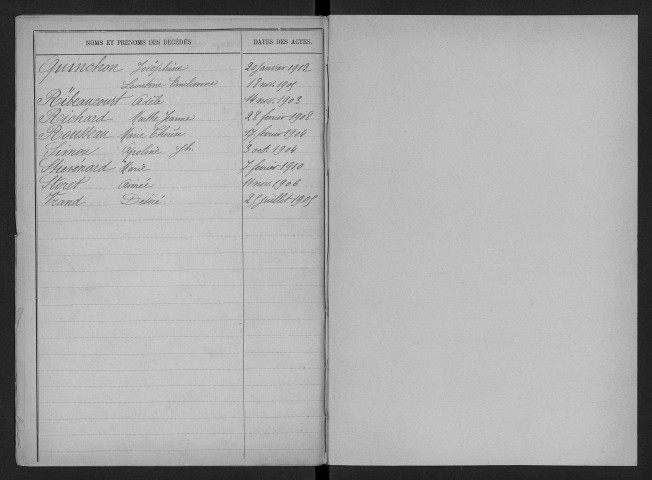 NOMS ET PRENOMS DES DÉCÉDÉS. DATES DES ACTES.
Quinchon Joséphine 20 janvier 1912
Emilienne 18 nov. 1905
Ribeaucourt Adèle 14 nov. 1903
Richard Marthe Jeanne 28 février 1908
Rousseau Marie Thérèse 17 février 1904
Simon 3 oct. 1904
Marie 7 février 1910
Storet Aimée 11 nov. 1906
Vrand Désiré 25 juillet 1905